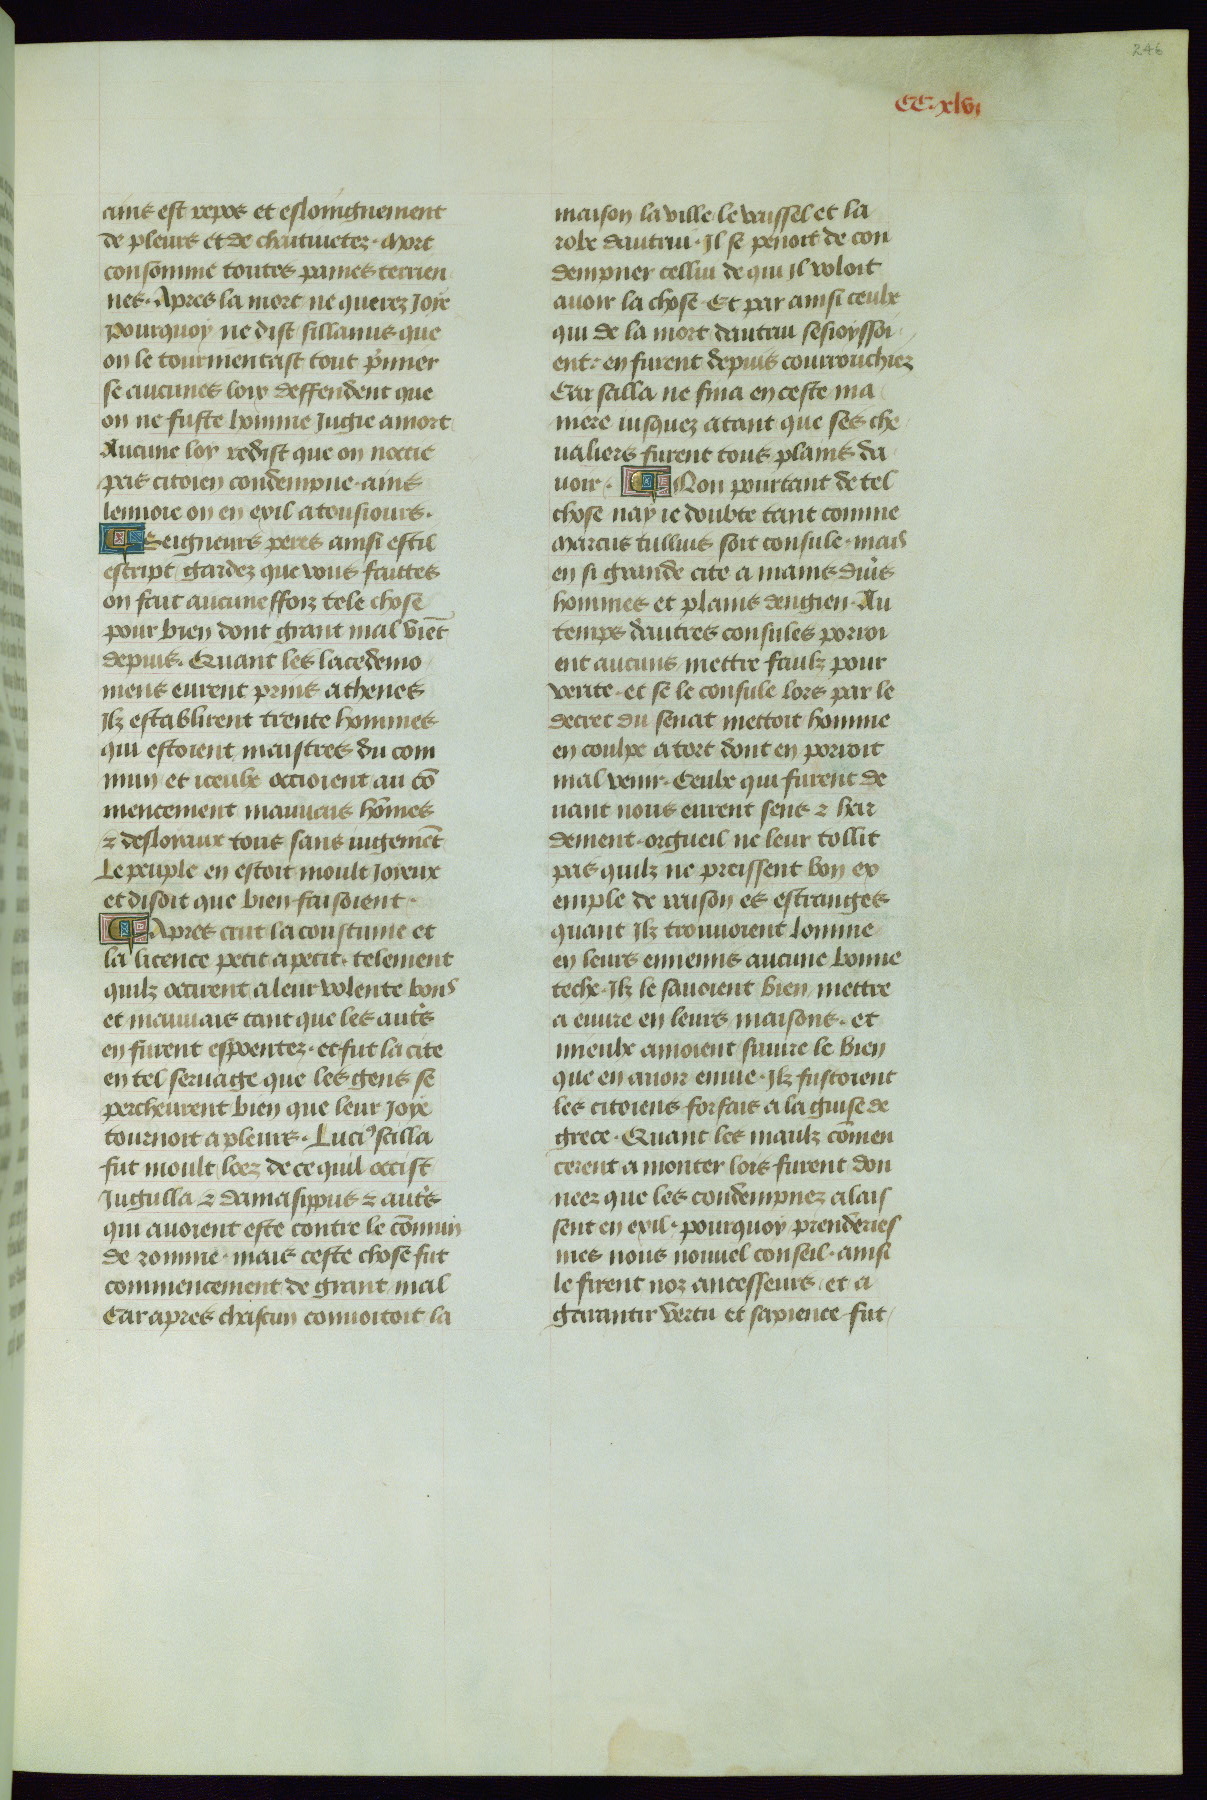 246
CC.xlvi
ains est repos et esloingnement
de pleurs et de chaitiuetez. Mort
consomme toutes paines terrien
nes. Apres la mort ne querez Joye
Pourquoy ne dist sillanus que
on le tourmentast tout p̃mier
se aucunes loix deffendent que
on ne fuste homme Jugie a mort
Aucune loy redist que on noccie
pas citoien condempne. ains
lenuoie on en exil a tousiours.
Seigneurs peres ainsi est il
escript gardez que vous faittes
on fait aucuneffoiz tele chose
pour bien dont grant mal viẽt
depuis. Quant les lacedemo
niens eurent prins athenes
Ilz establirent trente hommes
qui estoient maistres du com
mun et iceulx occioient au cõ
mencement mauuais hõmes
⁊ desloyaux tous sans iugemẽt
Le peuple en estoit moult Joyeux
et disoit que bien faisoient.
Apres crut la coustume et
la licence petit a petit. telement
quilz occirent a leur volente bons
et mauuais tant que les aut̃s
en furent espoentez. et fut la cite
en tel seruage que les gens se
percheurent bien que leur Joye
tournoit a pleurs. Luciꝰ scilla
fut moult loez de ce quil occist
Jugulla ⁊ damasippus ⁊ aut̃s
qui auoient este contre le cõmun
de romme. mais ceste chose fut
commencement de grant mal
Car apres chascun conuoitoit la
maison la ville le vaissel et la
robe dautrui. Il se penoit de con
dempner cellui de qui il voloit
auoir la chose. Et par ainsi ceulx
qui de la mort dautrui sesioyssoi
ent. en furent depuis courrouchiez
Car scilla ne fina en ceste ma
niere iusquez a tant que ses che
ualiers furent tous plains da
uoir. Non pourtant de tel
chose nay ie doubte tant comme
Marcus tullius soit consule. mais
en si grande cite a mains diu̾s
hommes et plains dengien. Au
temps dautres consules porroi
ent aucuns mettre faulz pour
verite. et se le consule lors par le
decret du senat mettoit homme
en coulpe a tort dont en porroit
mal venir. Ceulx qui furent de
uant nous eurent sens ⁊ har
dement. orgueil ne leur tollit
pas quilz ne preissent bon ex
emple de raison es estranges
quant Ilz trouuoient lomme
en leurs ennemis aucune bonne
teche. Ilz le sauoient bien mettre
a euure en leurs maisons. et
mieulx amoient suiure le bien
que en auoir enuie. Ilz fustoient
les citoiens forfais a la guise de
grece. Quant les maulz cõmen
cerent a monter lois furent don
nees que les condempnez alais
sent en exil. pourquoy prenderies
mes nous nouuel conseil. ainsi
le firent noz ancesseurs. et a
garantir vertu et sapience fut